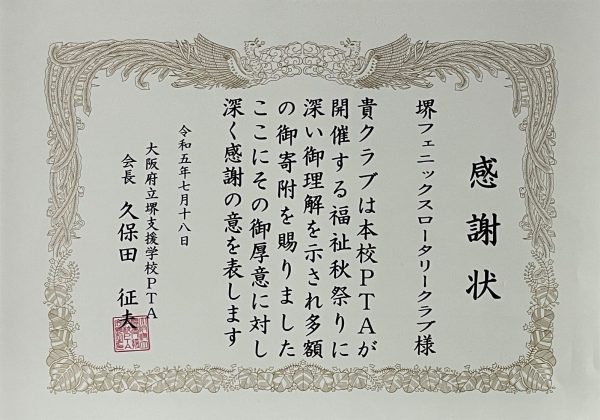 感謝状
堺フェニックスロータリークラブ様
貴クラブは本校PTAが
開催する福祉秋祭りに
深い御理解を示され多額
の御寄附を賜りました
ここにその御厚意に対し
深く感謝の意を表します
令和五年七月十八日
大阪府立堺支援学校PTA
会長 久保田 征夫